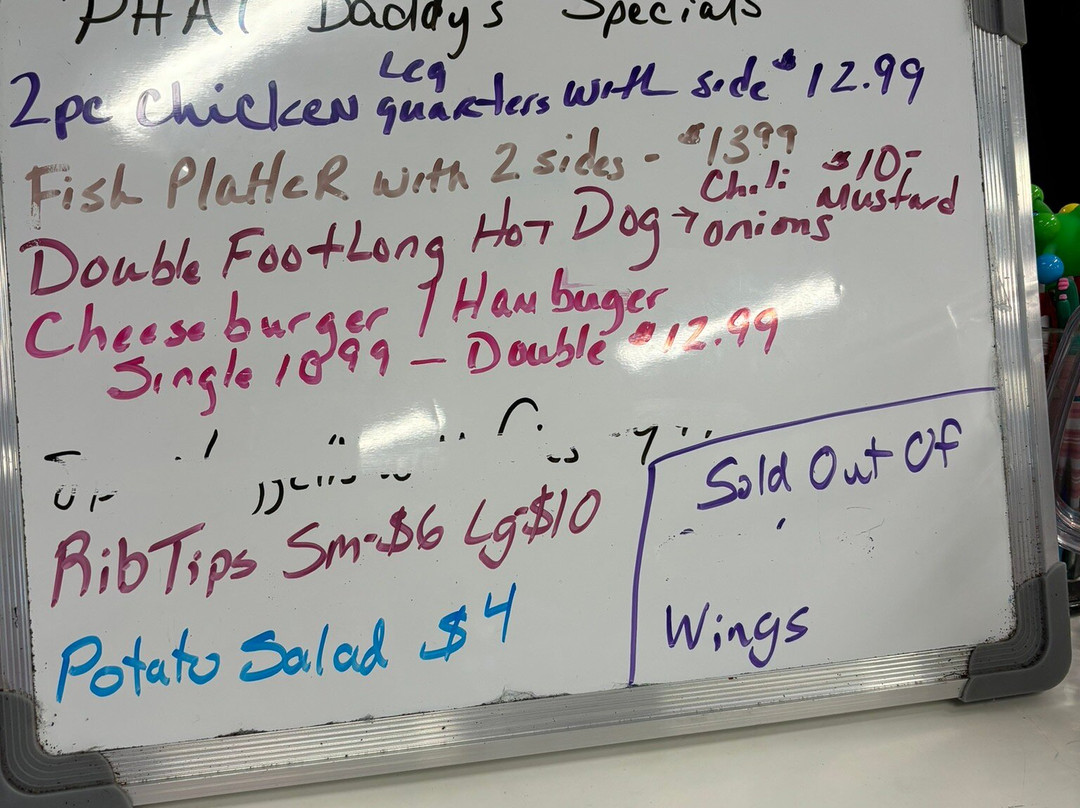 PHAT Daddy's Specials
2pc Chicken Leg quarters with side $12.99
Fish Platter with 2 sides - $13.99
Double FootLong Hot Dog → Chili $10-
onions Mustard
Cheeseburger / Hambuger
Single 10.99 - Double $12.99
Rib Tips Sm-$6 Lg-$10
Potato Salad $4
Sold Out Of
Wings